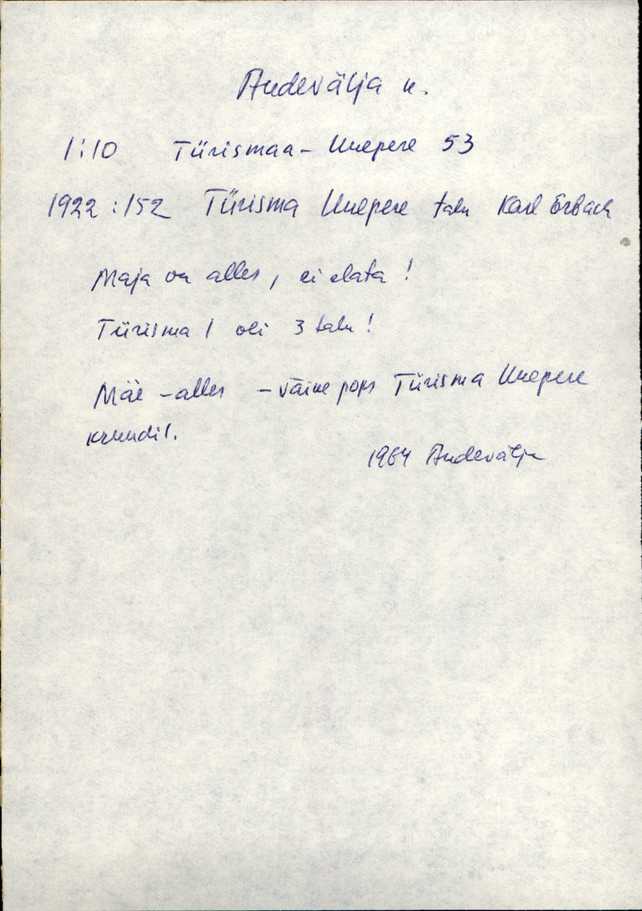 Audevälja k.
1:10 Türismaa - Unepere 53
1922:152 Türisma Unepere talu Karl Erbach
Maja on alles, ei elata!
Türisma 1 oli 3 talu!
Mäe - alles - väike pops Türisma Unepere
krundil.
1964 Audevälja